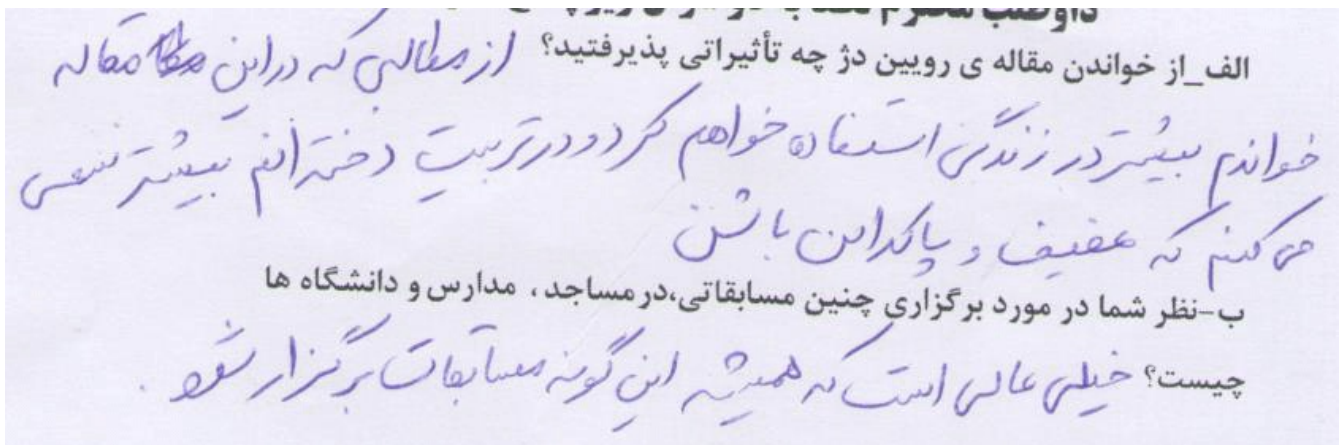 داوطلب محترم لطفا به
الف_از خواندن مقاله ی رویین دژ چه تأثیراتی پذیرفتید؟ از مطالبی که در این مقاله
خواندم بیشتر در زندگی استفاده خواهم کرد و در تربیت دخترانم بیشتر سعی
می کنم که عفیف و پاکدامن باشن
ب-نظر شما در مورد برگزاری چنین مسابقاتی،در مساجد، مدارس و دانشگاه ها
چیست؟ خیلی عالی است که همیشه این گونه مسابقات برگزار شود.